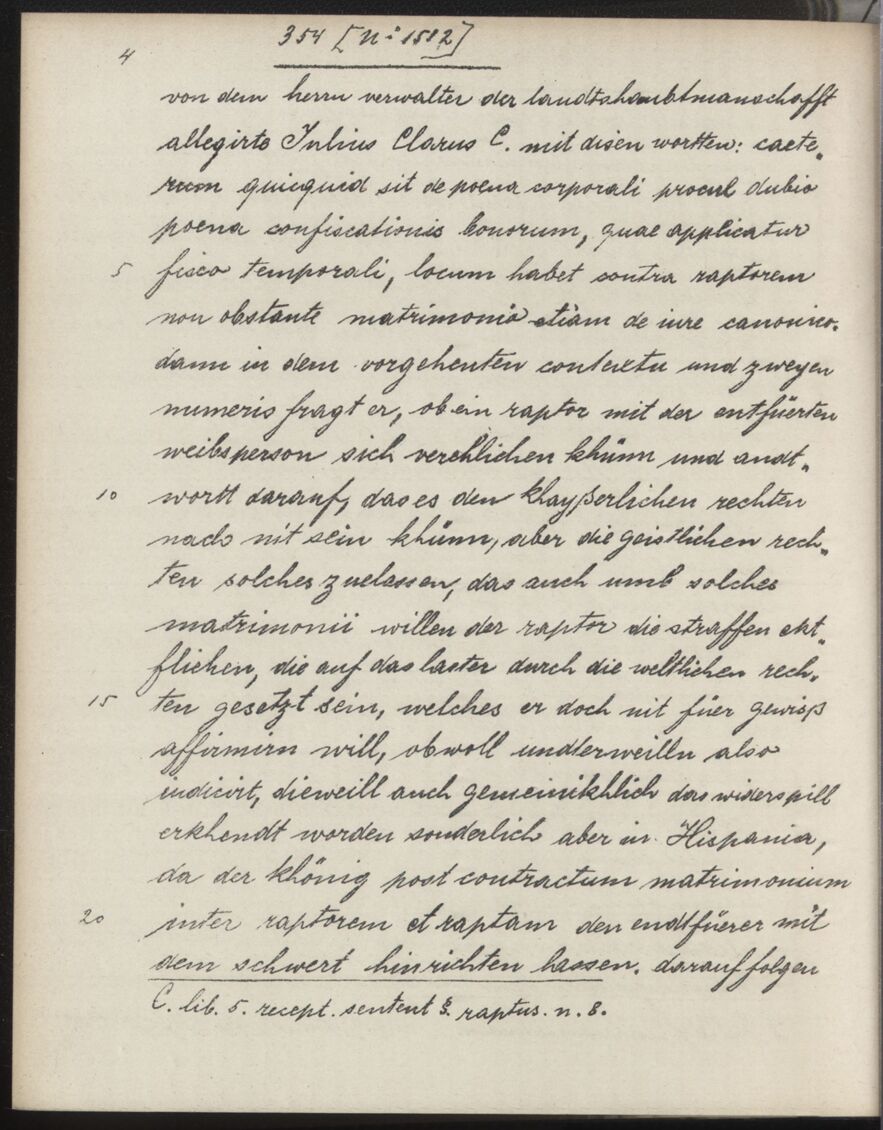 354 [N: 1582]
4
von dem herrn verwalter der landtshaubtmanschafft
allegirte Julius Clarus C. mit disen wortten: caete„
rum quicquid sit de poena corporali procul dubio
poena confiscationis bonorum, quae applicatur
5 fisco temporali, locum habet contra raptorem
non obstante matrimonio etiam de iure canonico.
dann in dem vorgehenten contextu und zweyen
numeris fragt er, ob ein raptor mit der entfüerten
weibsperson sich verehlichen khünn und andt„
10 wortt darauf, das es den khayßerlichen rechten
nach nit sein khünn, aber die geistlichen rech„
ten solches zuelassen, das auch umb solches
matrimonii willen der raptor die straffen ent„
fliehen, die auf das laster durch die weltlichen rech„
15 ten gesetzt sein, welches er doch nit füer gewiß
affirmirn will, obwoll underweilln also
iudicirt, dieweill auch gemeinikhlich das widerspill
erkhendt worden sonderlich aber in Hispania,
da der khönig post contractum matrimonium
20 inter raptorem et raptam den endtfüerer mit
dem schwert hinrichten lassen. darauf folgen
C. lib. 5. recept. sentent §. raptus. n. 8.